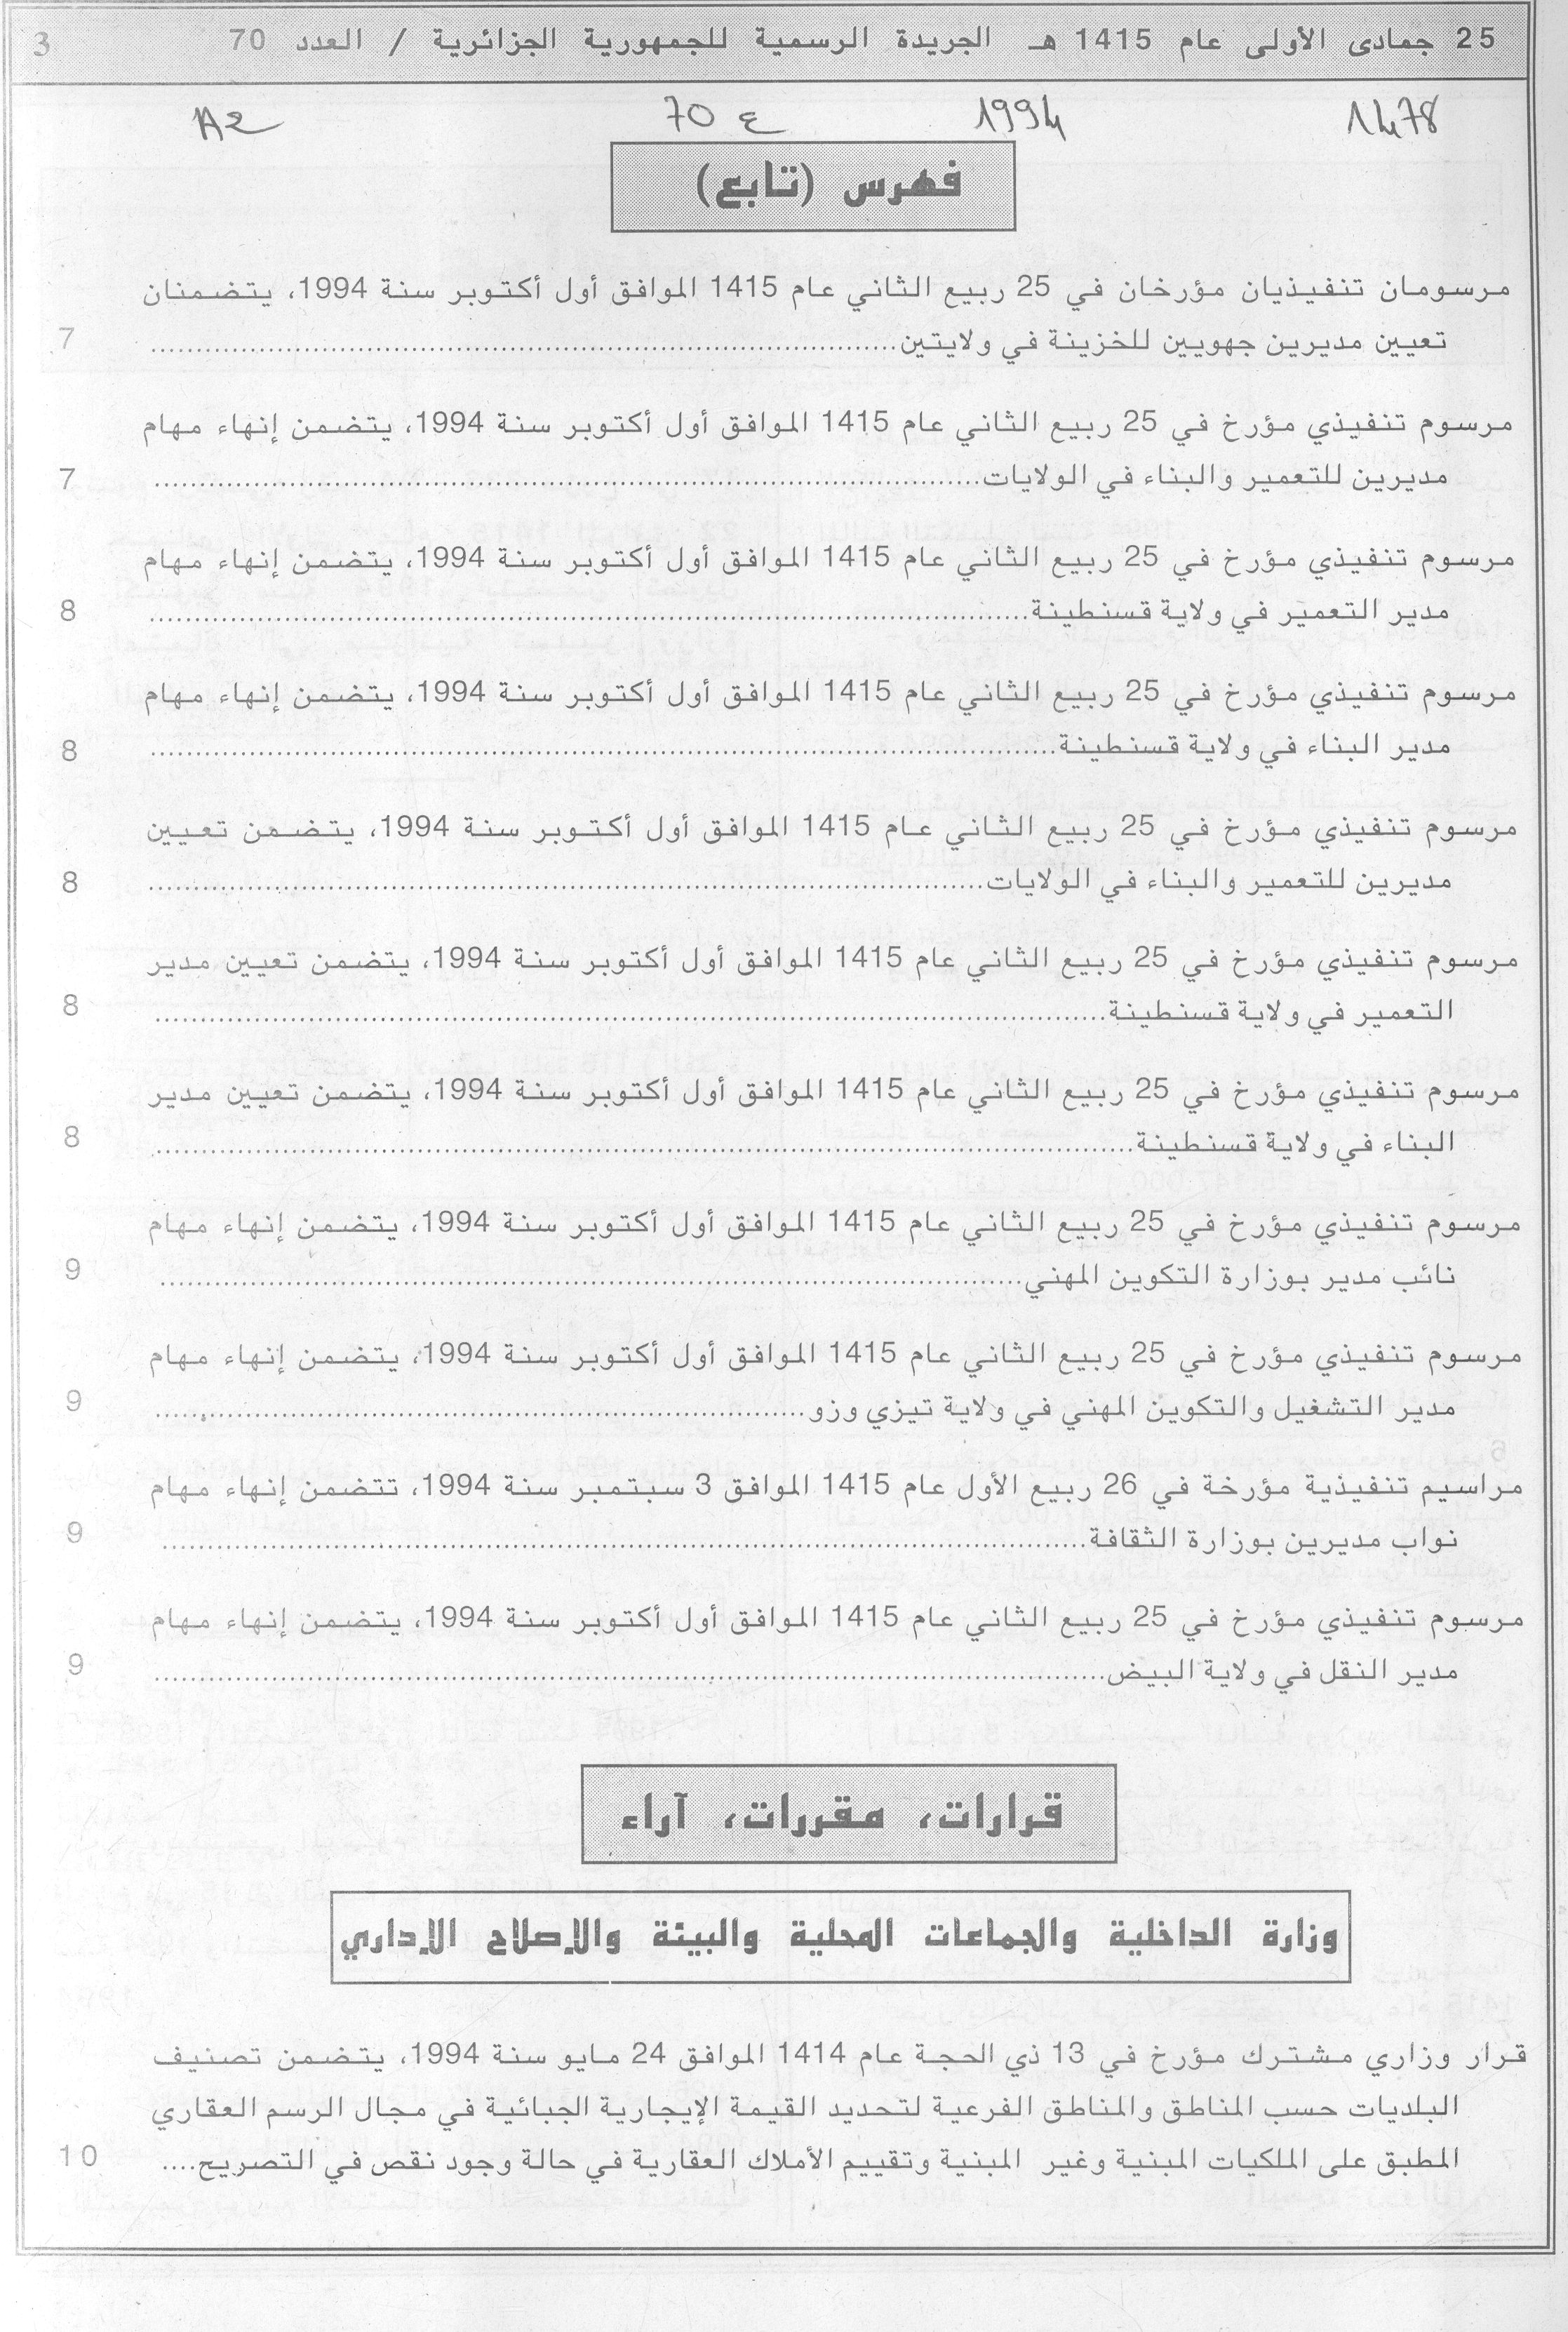 25 جمادى الأولى عام 1415 هـ الجريدة الرسمية للجمهورية الجزائرية / العدد 70 3
1478 1994 ع 70 A2
فهرس (تابع)
مرسومان تنفيذيان مؤرخان في 25 ربيع الثاني عام 1415 الموافق أول أكتوبر سنة 1994، يتضمنان
تعيين مديرين جهويين للخزينة في ولايتين........................................ 7
مرسوم تنفيذي مؤرخ في 25 ربيع الثاني عام 1415 الموافق أول أكتوبر سنة 1994، يتضمن إنهاء مهام
مديرين للتعمير والبناء في الولايات........................................ 7
مرسوم تنفيذي مؤرخ في 25 ربيع الثاني عام 1415 الموافق أول أكتوبر سنة 1994، يتضمن إنهاء مهام
مدير التعمير في ولاية قسنطينة........................................ 8
مرسوم تنفيذي مؤرخ في 25 ربيع الثاني عام 1415 الموافق أول أكتوبر سنة 1994، يتضمن إنهاء مهام
مدير البناء في ولاية قسنطينة........................................ 8
مرسوم تنفيذي مؤرخ في 25 ربيع الثاني عام 1415 الموافق أول أكتوبر سنة 1994، يتضمن تعيين
مديرين للتعمير والبناء في الولايات........................................ 8
مرسوم تنفيذي مؤرخ في 25 ربيع الثاني عام 1415 الموافق أول أكتوبر سنة 1994، يتضمن تعيين مدير
التعمير في ولاية قسنطينة........................................ 8
مرسوم تنفيذي مؤرخ في 25 ربيع الثاني عام 1415 الموافق أول أكتوبر سنة 1994، يتضمن تعيين مدير
البناء في ولاية قسنطينة........................................ 8
مرسوم تنفيذي مؤرخ في 25 ربيع الثاني عام 1415 الموافق أول أكتوبر سنة 1994، يتضمن إنهاء مهام
نائب مدير بوزارة التكوين المهني........................................ 9
مرسوم تنفيذي مؤرخ في 25 ربيع الثاني عام 1415 الموافق أول أكتوبر سنة 1994، يتضمن إنهاء مهام
مدير التشغيل والتكوين المهني في ولاية تيزي وزو........................................ 9
مراسيم تنفيذية مؤرخة في 26 ربيع الأول عام 1415 الموافق 3 سبتمبر سنة 1994، تتضمن إنهاء مهام
نواب مديرين بوزارة الثقافة........................................ 9
مرسوم تنفيذي مؤرخ في 25 ربيع الثاني عام 1415 الموافق أول أكتوبر سنة 1994، يتضمن إنهاء مهام
مدير النقل في ولاية البيض........................................ 9
قرارات، مقررات، آراء
وزارة الداخلية والجماعات المحلية والبيئة والإصلاح الإداري
قرار وزاري مشترك مؤرخ في 13 ذي الحجة عام 1414 الموافق 24 مايو سنة 1994، يتضمن تصنيف
البلديات حسب المناطق والمناطق الفرعية لتحديد القيمة الإيجارية الجبائية في مجال الرسم العقاري
المطبق على الملكيات المبنية وغير المبنية وتقييم الأملاك العقارية في حالة وجود نقص في التصريح.... 10